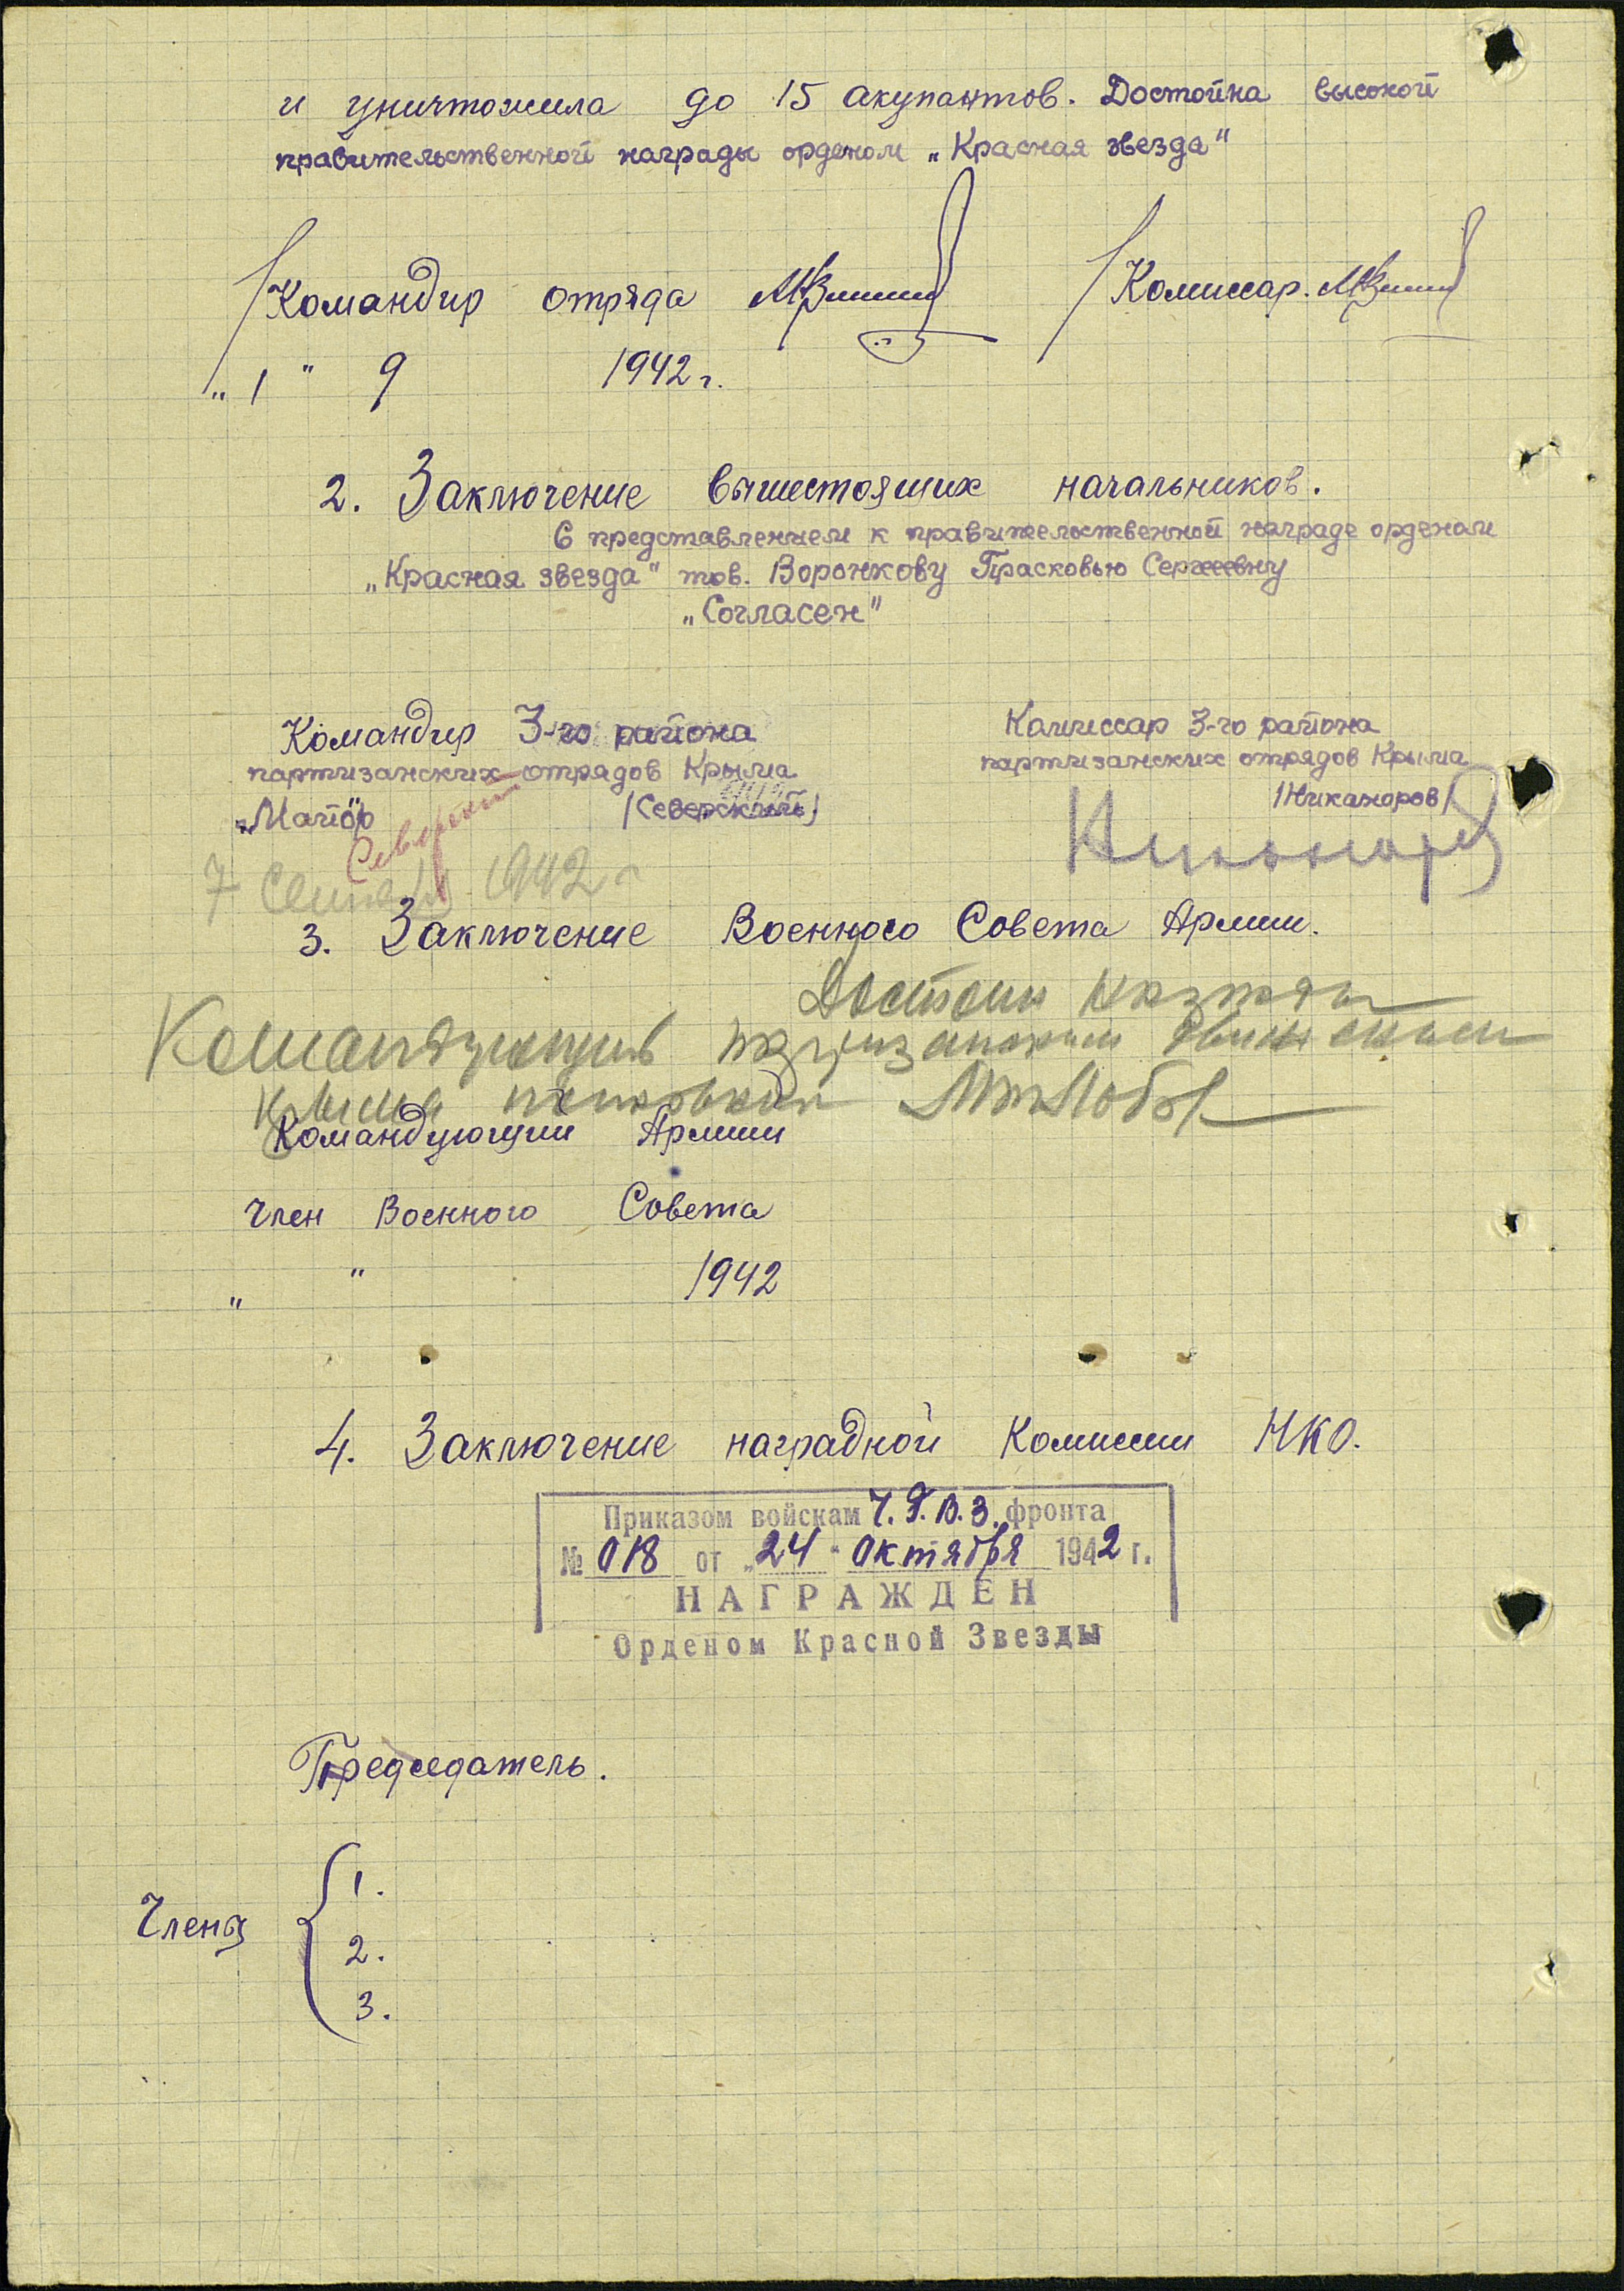 и уничтожила до 15 акупантов. Достойна высокой
правительственной награды орденом „Красная звезда"
Командир отряда
Комиссар.
„ 1 " 9 1942 г.
2. Заключение вышестоящих начальников.
С представлением к правительственной награде орденом
„Красная звезда" тов. Воронкову Прасковью Сергеевну
„Согласен"
Командир 3-го района
партизанских отрядов Крыма
„Майор" /Северский/
Северский
Комиссар 3-го района
партизанских отрядов Крыма
/Никаноров/
Никаноров
7 Сентября 1942 г
3. Заключение Военного Совета Армии.
Достоин награды
Командующий партизанским движением
Крыма полковник МтЛобов
Командующий Армии
Член Военного Совета
„ " 1942
4. Заключение наградной Комиссии НКО.
Приказом войскам Ч.Г.В.З. фронта
№ 018 от „24" октября 1942 г.
НАГРАЖДЕН
Орденом Красной Звезды
Председатель.
Члены
1.
2.
3.